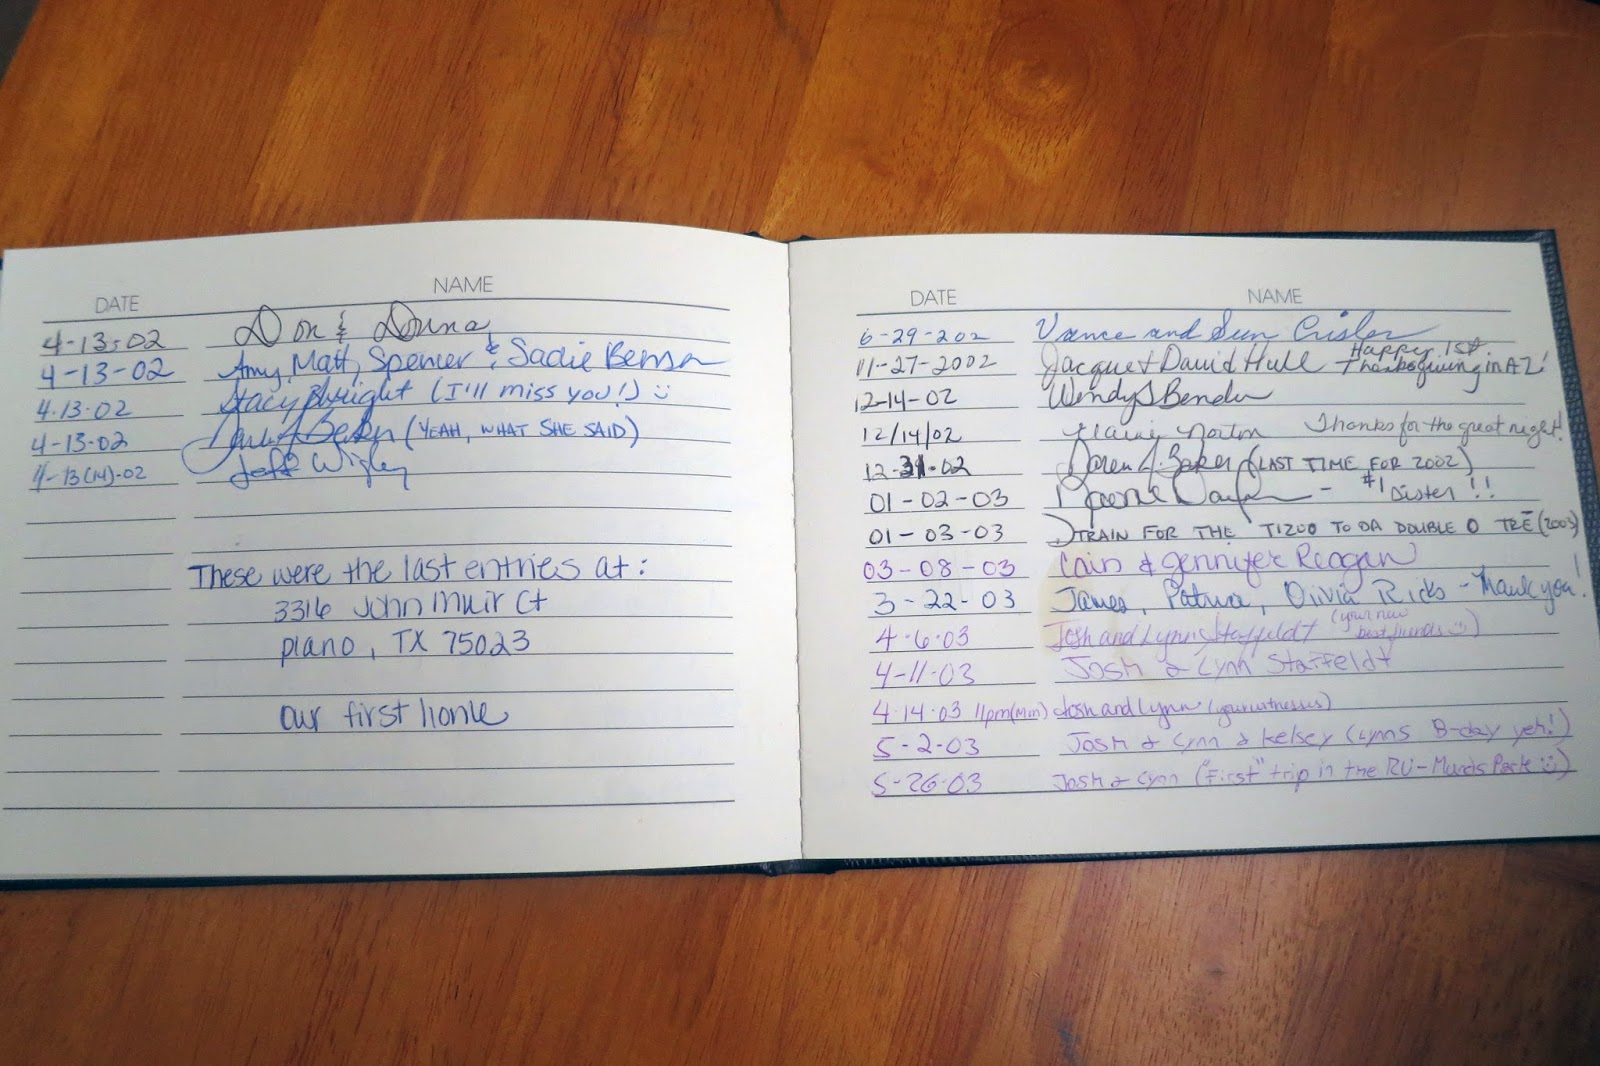 DATE NAME
4-13-02 Don & Donna
4-13-02 Amy, Matt, Spencer & Sadie Benson
4-13-02 Stacy (I'll miss you!)
4-13-02 (YEAH, WHAT SHE SAID)
4-13(14)-02 Jeff Wigley
These were the last entries at:
3316 John Muir Ct
plano, TX 75023
our first home
DATE NAME
6-29-202 Vance and Sun Crisler
11-27-2002 Jacque & David Hull Happy 1st Thanksgiving in AZ!
12-14-02 Wendy S Bender
12/14/02 Norton Thanks for the great night!
12-31-02 Daren J. Baker (LAST TIME FOR 2002)
01-02-03 - #1 Sister!!
01-03-03 DTRAIN FOR THE 1ST TIZOO TO DA DOUBLE O TRĒ (2003)
03-08-03 Cain & Jennifer Reagan
3-22-03 James, Patricia, Olivia Ricks - Thank you!
4-6-03 Josh and Lynn Staffeldt (your new best friends)
4-11-03 Josh & Lynn Staffeldt
4-14-03 11pm(Mon) Josh and Lynn (your witnesses)
5-2-03 Josh & Lynn & Kelsey (Lynns B-day yeh!)
5-26-03 Josh & Lynn ("First" trip in the RV - Munds Park)